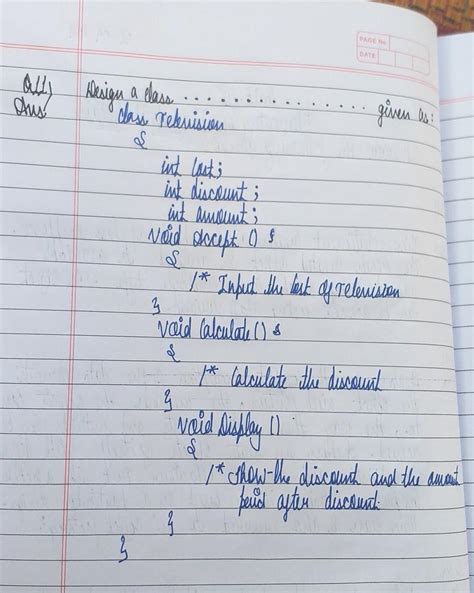 PAGE No.
DATE
Q11)
Design a class .................. given as:
Ans:
class Television
{
int Cost;
int discount;
int amount;
void Accept ()
{
/* Input the Cost of Television
}
void Calculate()
{
/* Calculate the discount
}
void Display ()
{
/* Show the discount and the amount
paid after discount
}
}